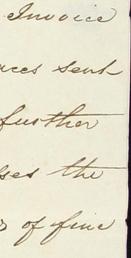 Invoice
ces sent
further
ses the
of fine